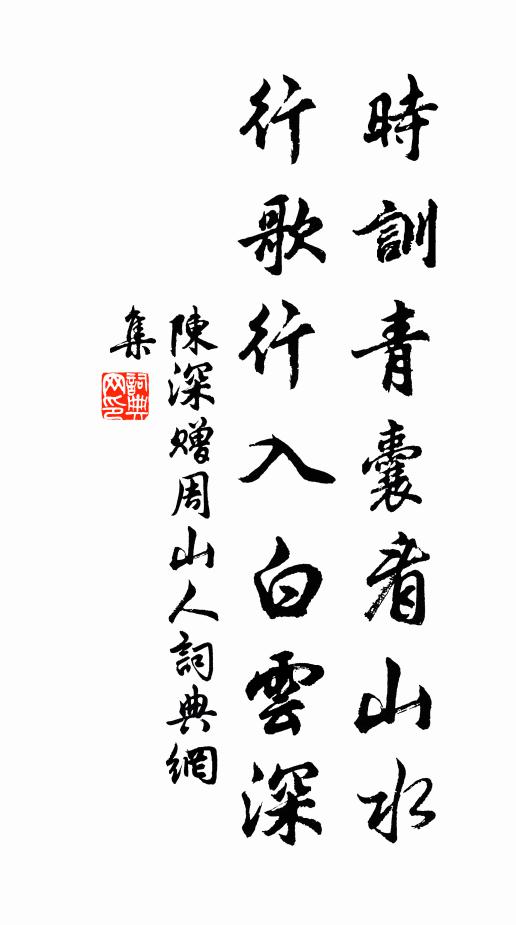 時訓青囊看山水
行歌行入白雲深
陳深贈周山人詞典網
集
詞典
网印